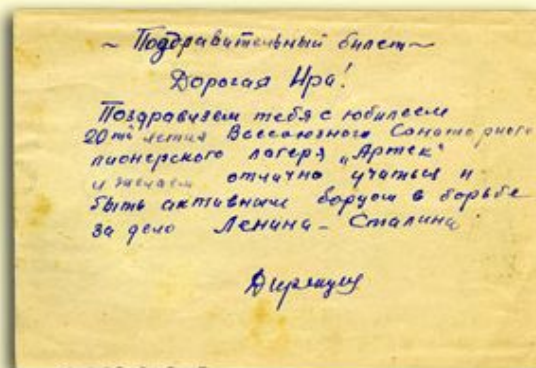 ~ Поздравительный билет ~
Дорогая Ира!
Поздравляем тебя с юбилеем
20ти летия Всесоюзного Санаторного
пионерского лагеря „Артек"
и желаем отлично учиться и
быть активным борцом в борьбе
за дело Ленина - Сталина
Дирекция